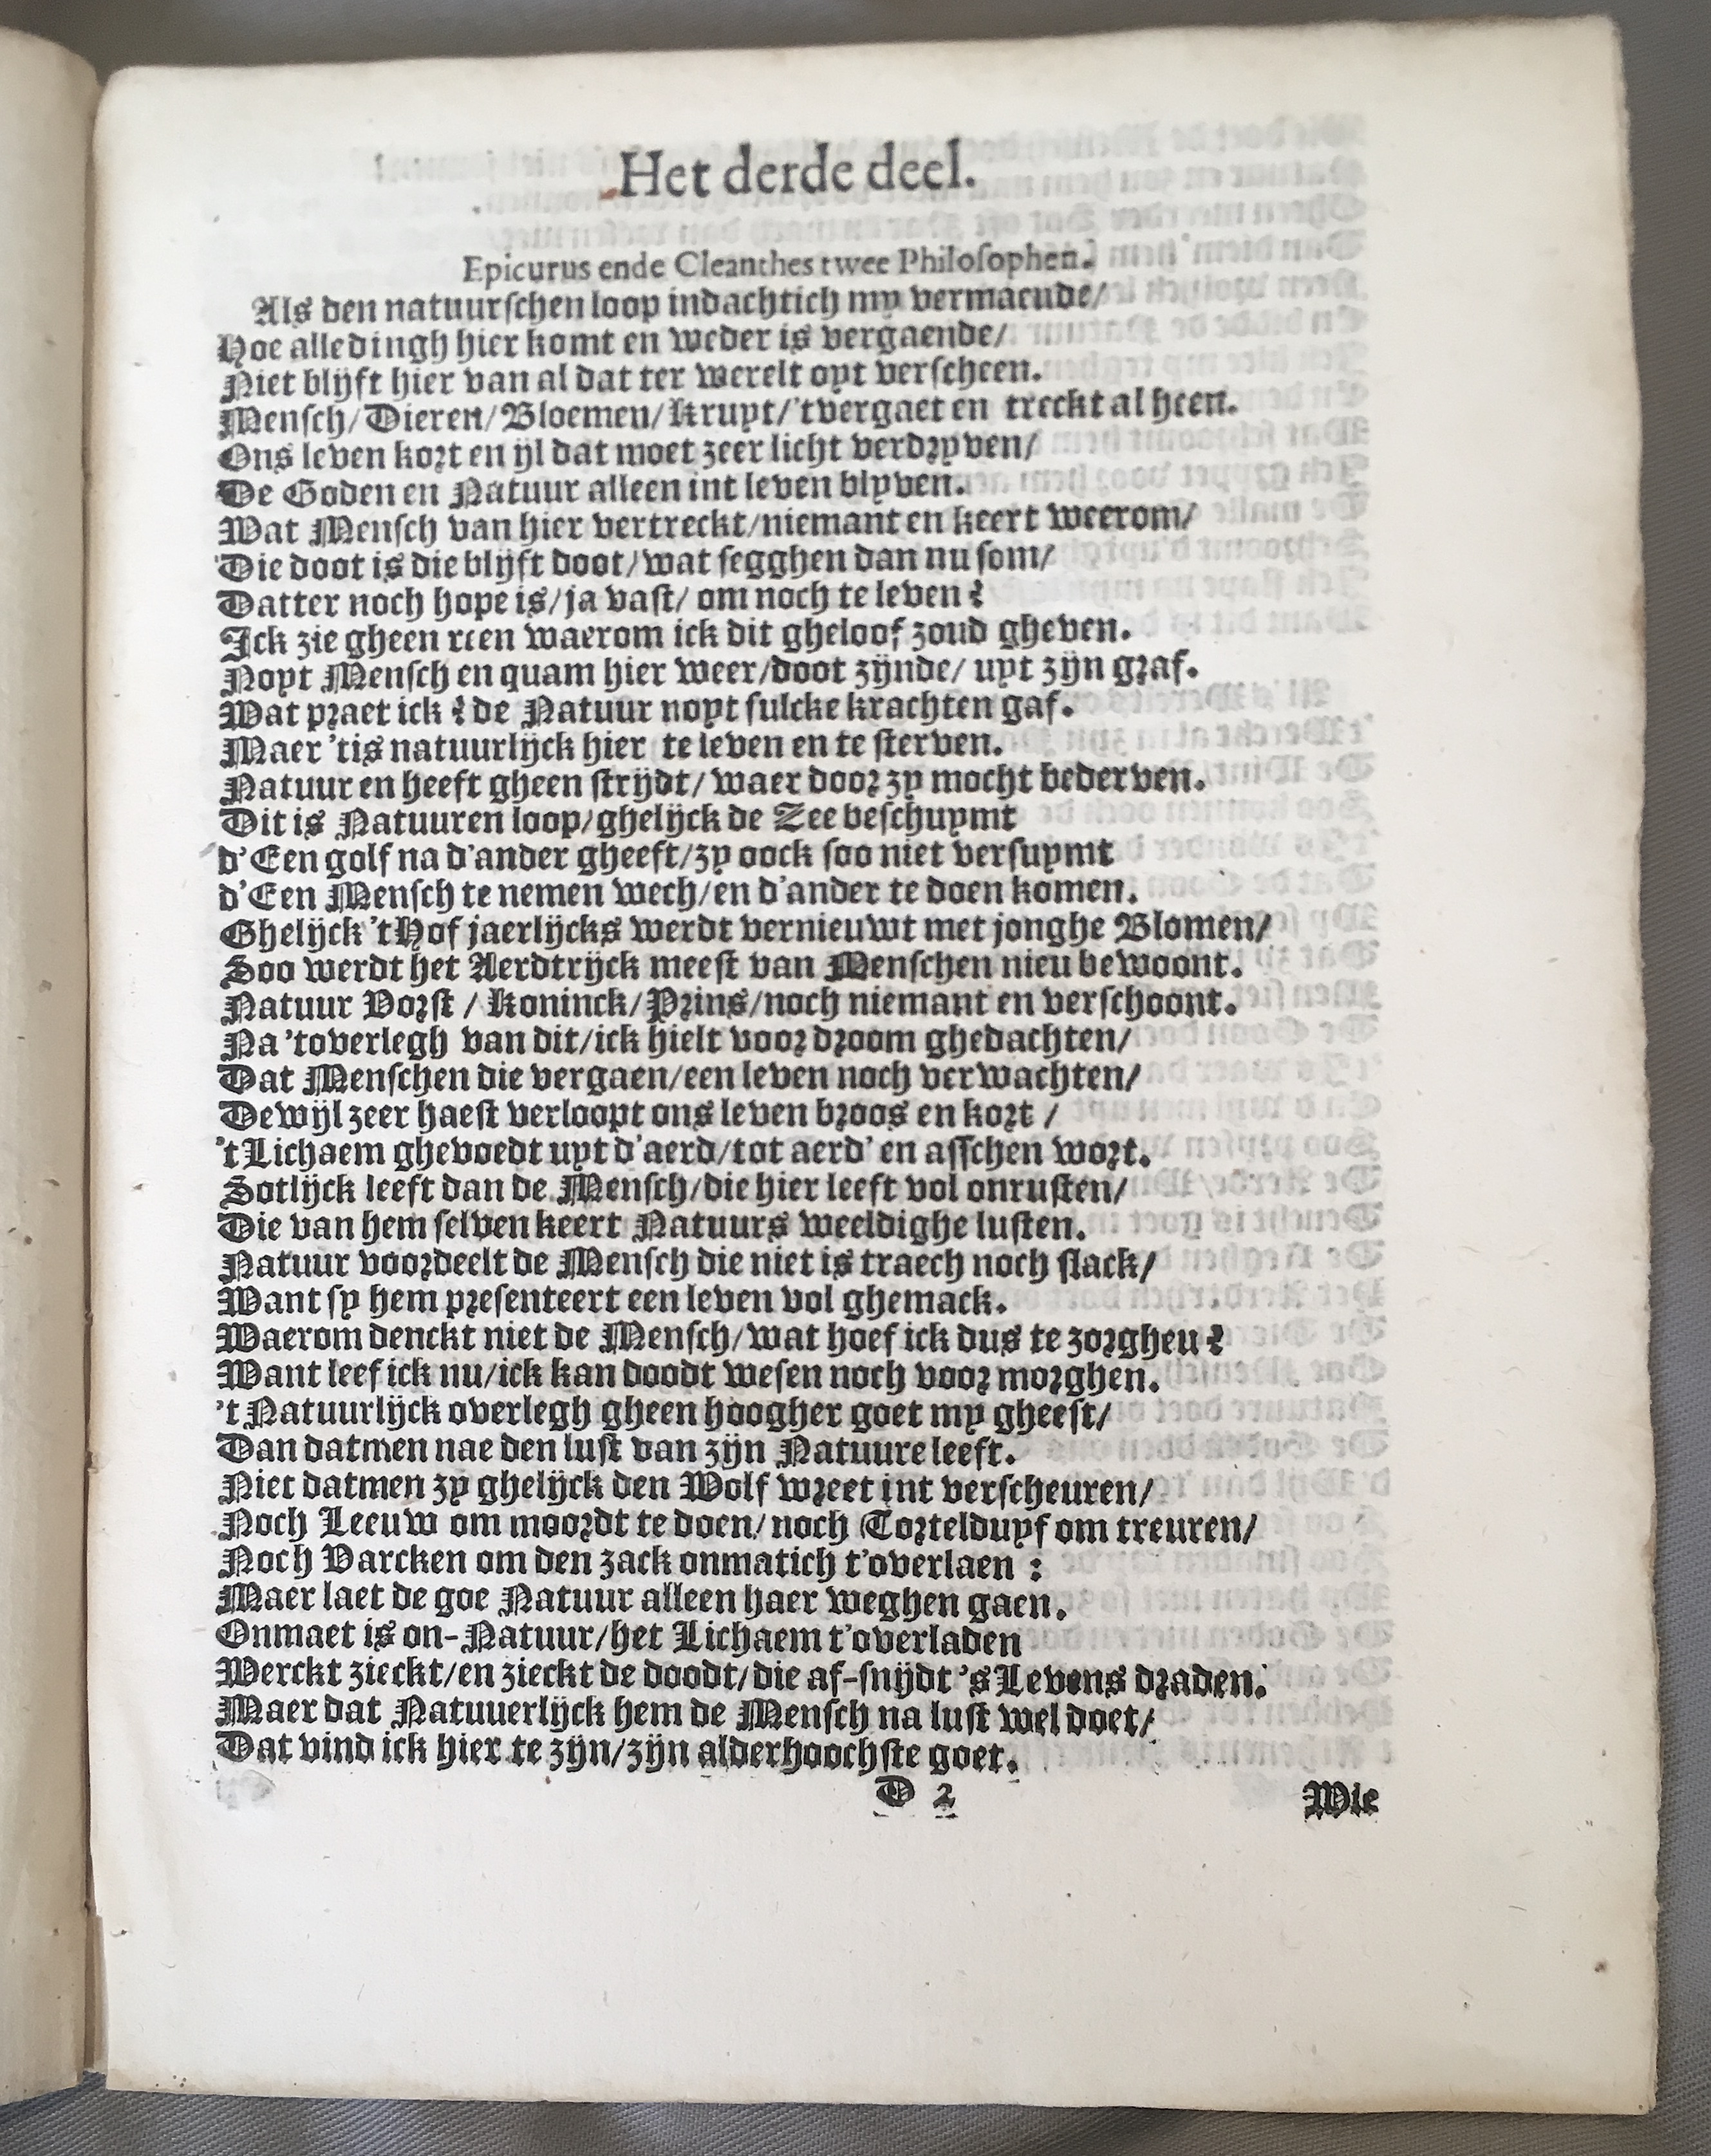 Het derde deel.
Epicurus ende Cleanthes twee Philosophen.
Als den natuurschen loop indachtich my vermaende/
Hoe alledingh hier komt en weder is vergaende/
Niet blijft hier van al dat ter werelt oyt verscheen.
Mensch/Dieren/Bloemen/Kruyt/'tvergaet en treckt al heen.
Ons leven kort en ijl dat moet zeer licht verdryven/
De Goden en Natuur alleen int leven blyven.
Wat Mensch van hier vertreckt/niemant en keert weerom/
Die doot is die blijft doot/wat segghen dan nu som/
Datter noch hope is/ja vast/ om noch te leven?
Ick zie gheen reen waerom ick dit gheloof zoud gheven.
Noyt Mensch en quam hier weer/doot zijnde/ uyt zijn graf.
Wat praet ick? de Natuur noyt sulcke krachten gaf.
Maer 'tis natuurlijck hier te leven en te sterven.
Natuur en heeft gheen strijdt/ waer door zy mocht bederven.
Dit is Natuuren loop/ghelijck de Zee beschuymt
d'Een golf na d'ander gheeft/zy oock soo niet versuymt
d'Een Mensch te nemen wech/en d'ander te doen komen.
Ghelijck 't Hof jaerlijcks werdt vernieuwt met jonghe Blomen/
Soo werdt het Aerdtrijck meest van Menschen nieu bewoont.
Natuur Vorst / Koninck/Prins/noch niemant en verschoont.
Na 'toverlegh van dit/ick hielt voor droom ghedachten/
Dat Menschen die vergaen/een leven noch verwachten/
Dewijl zeer haest verloopt ons leven broos en kort /
't Lichaem ghevoedt uyt d'aerd/tot aerd' en asschen wort.
Sotlijck leeft dan de Mensch/die hier leeft vol onrusten/
Die van hem selven keert Natuurs weeldighe lusten.
Natuur voordeelt de Mensch die niet is traech noch slack/
Want sy hem presenteert een leven vol ghemack.
Waerom denckt niet de Mensch/wat hoef ick dus te zorgheu?
Want leef ick nu/ick kan doodt wesen noch voor morghen.
't Natuurlijck overlegh gheen hoogher goet my gheeft/
Dan datmen nae den lust van zijn Natuure leeft.
Niet datmen zy ghelijck den Wolf wreet int verscheuren/
Noch Leeuw om moordt te doen/noch Torteldupf om treuren/
Noch Varcken om den zack onmatich t'overlaen :
Maer laet de goe Natuur alleen haer weghen gaen.
Onmaet is on-Natuur/het Lichaem t'overladen
Werckt zieckt/en zieckt de doodt/die af-snijdt 's Levens draden.
Maer dat Natuuerlijck hem de Mensch na lust wel doet/
Dat vind ick hier te zijn/zijn alderhoochste goet.
D 2
Wie